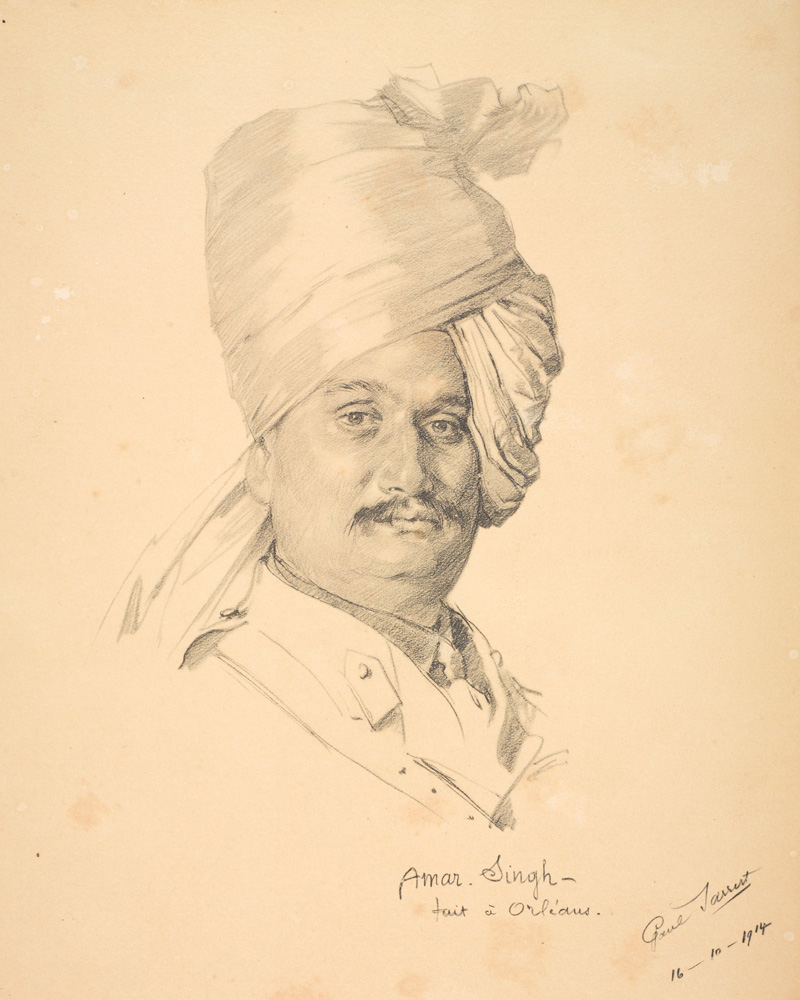 Amar. Singh –
fait à Orléans.
Paul Sarrut
16 – 10 – 1914